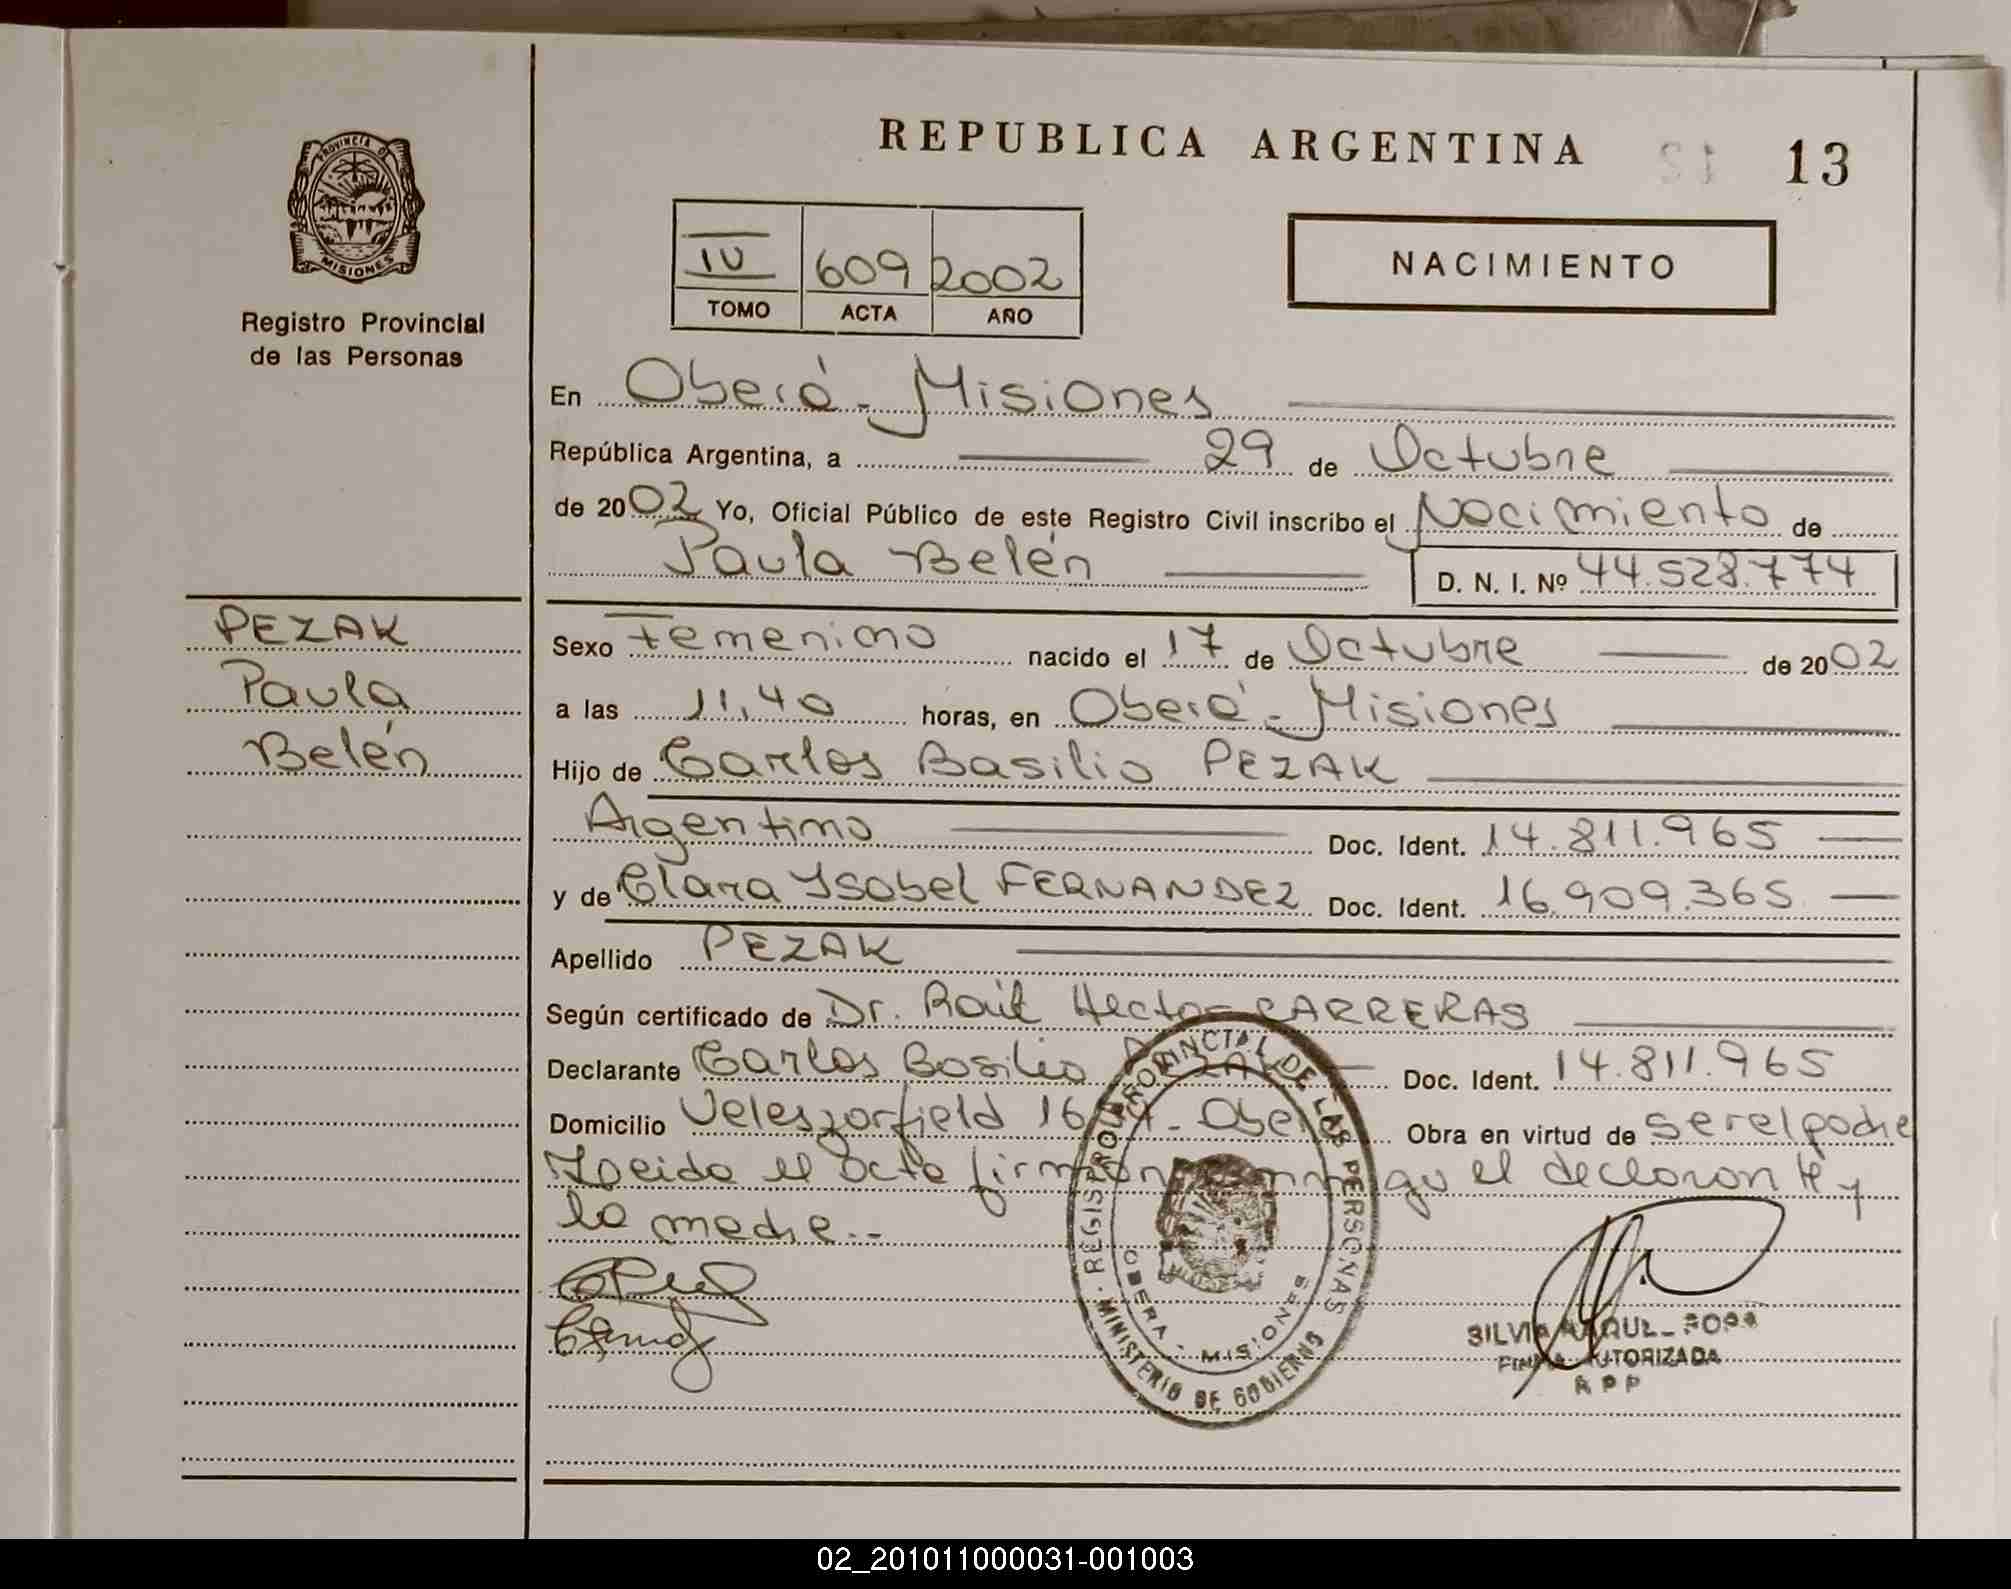 REPUBLICA ARGENTINA 13
PROVINCIA DE
MISIONES
Registro Provincial
de las Personas
IV 609 2002
TOMO ACTA AÑO
NACIMIENTO
En Oberá - Misiones
República Argentina, a 29 de Octubre
de 2002 Yo, Oficial Público de este Registro Civil inscribo el Nacimiento de
Paula Belén D. N. I. Nº 44.528.774
PEZAK
Paula
Belén
Sexo Femenino nacido el 17 de Octubre de 2002
a las 11,40 horas, en Oberá - Misiones
Hijo de Carlos Basilio PEZAK
Argentino Doc. Ident. 14.811.965
y de Clara Ysabel FERNANDEZ Doc. Ident. 16.909.365
Apellido PEZAK
Según certificado de Dr. Raúl Hector CARRERAS
Declarante Carlos Basilio PEZAK Doc. Ident. 14.811.965
Domicilio Veleszarfield Obra en virtud de ser el padre
Leida el acta firman conmigo el declarante y
la madre.-
REGISTRO PROVINCIAL DE LAS PERSONAS
MINISTERIO DE GOBIERNO
OBERA - MISIONES
SILVIA
FIRMA AUTORIZADA
RPP
02_201011000031-001003